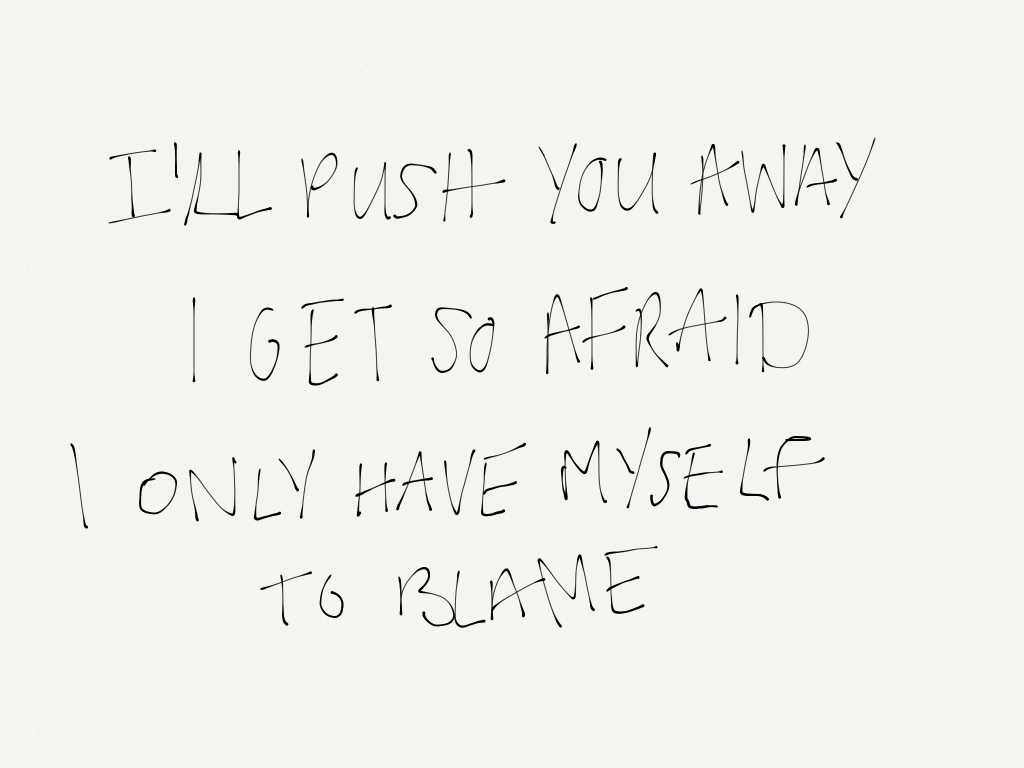 I'LL PUSH YOU AWAY
I GET SO AFRAID
I ONLY HAVE MYSELF
TO BLAME